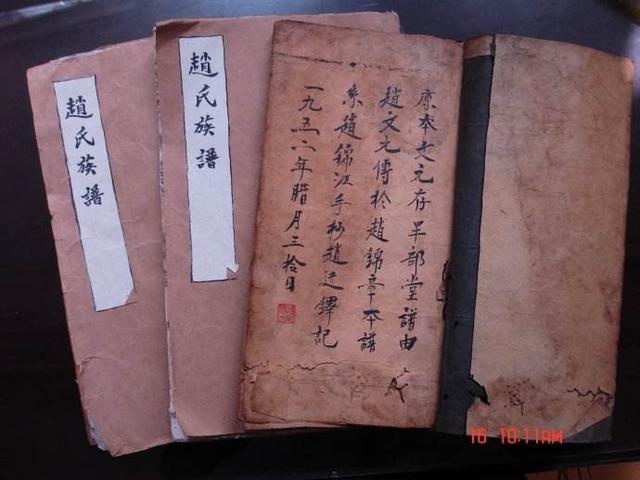 趙氏族譜
趙氏族譜
本文元存早部堂譜由
趙文元傳於趙錦章本譜
系趙錦江手抄趙鐸記
一九五年腊月三拾日
16 10:11AM